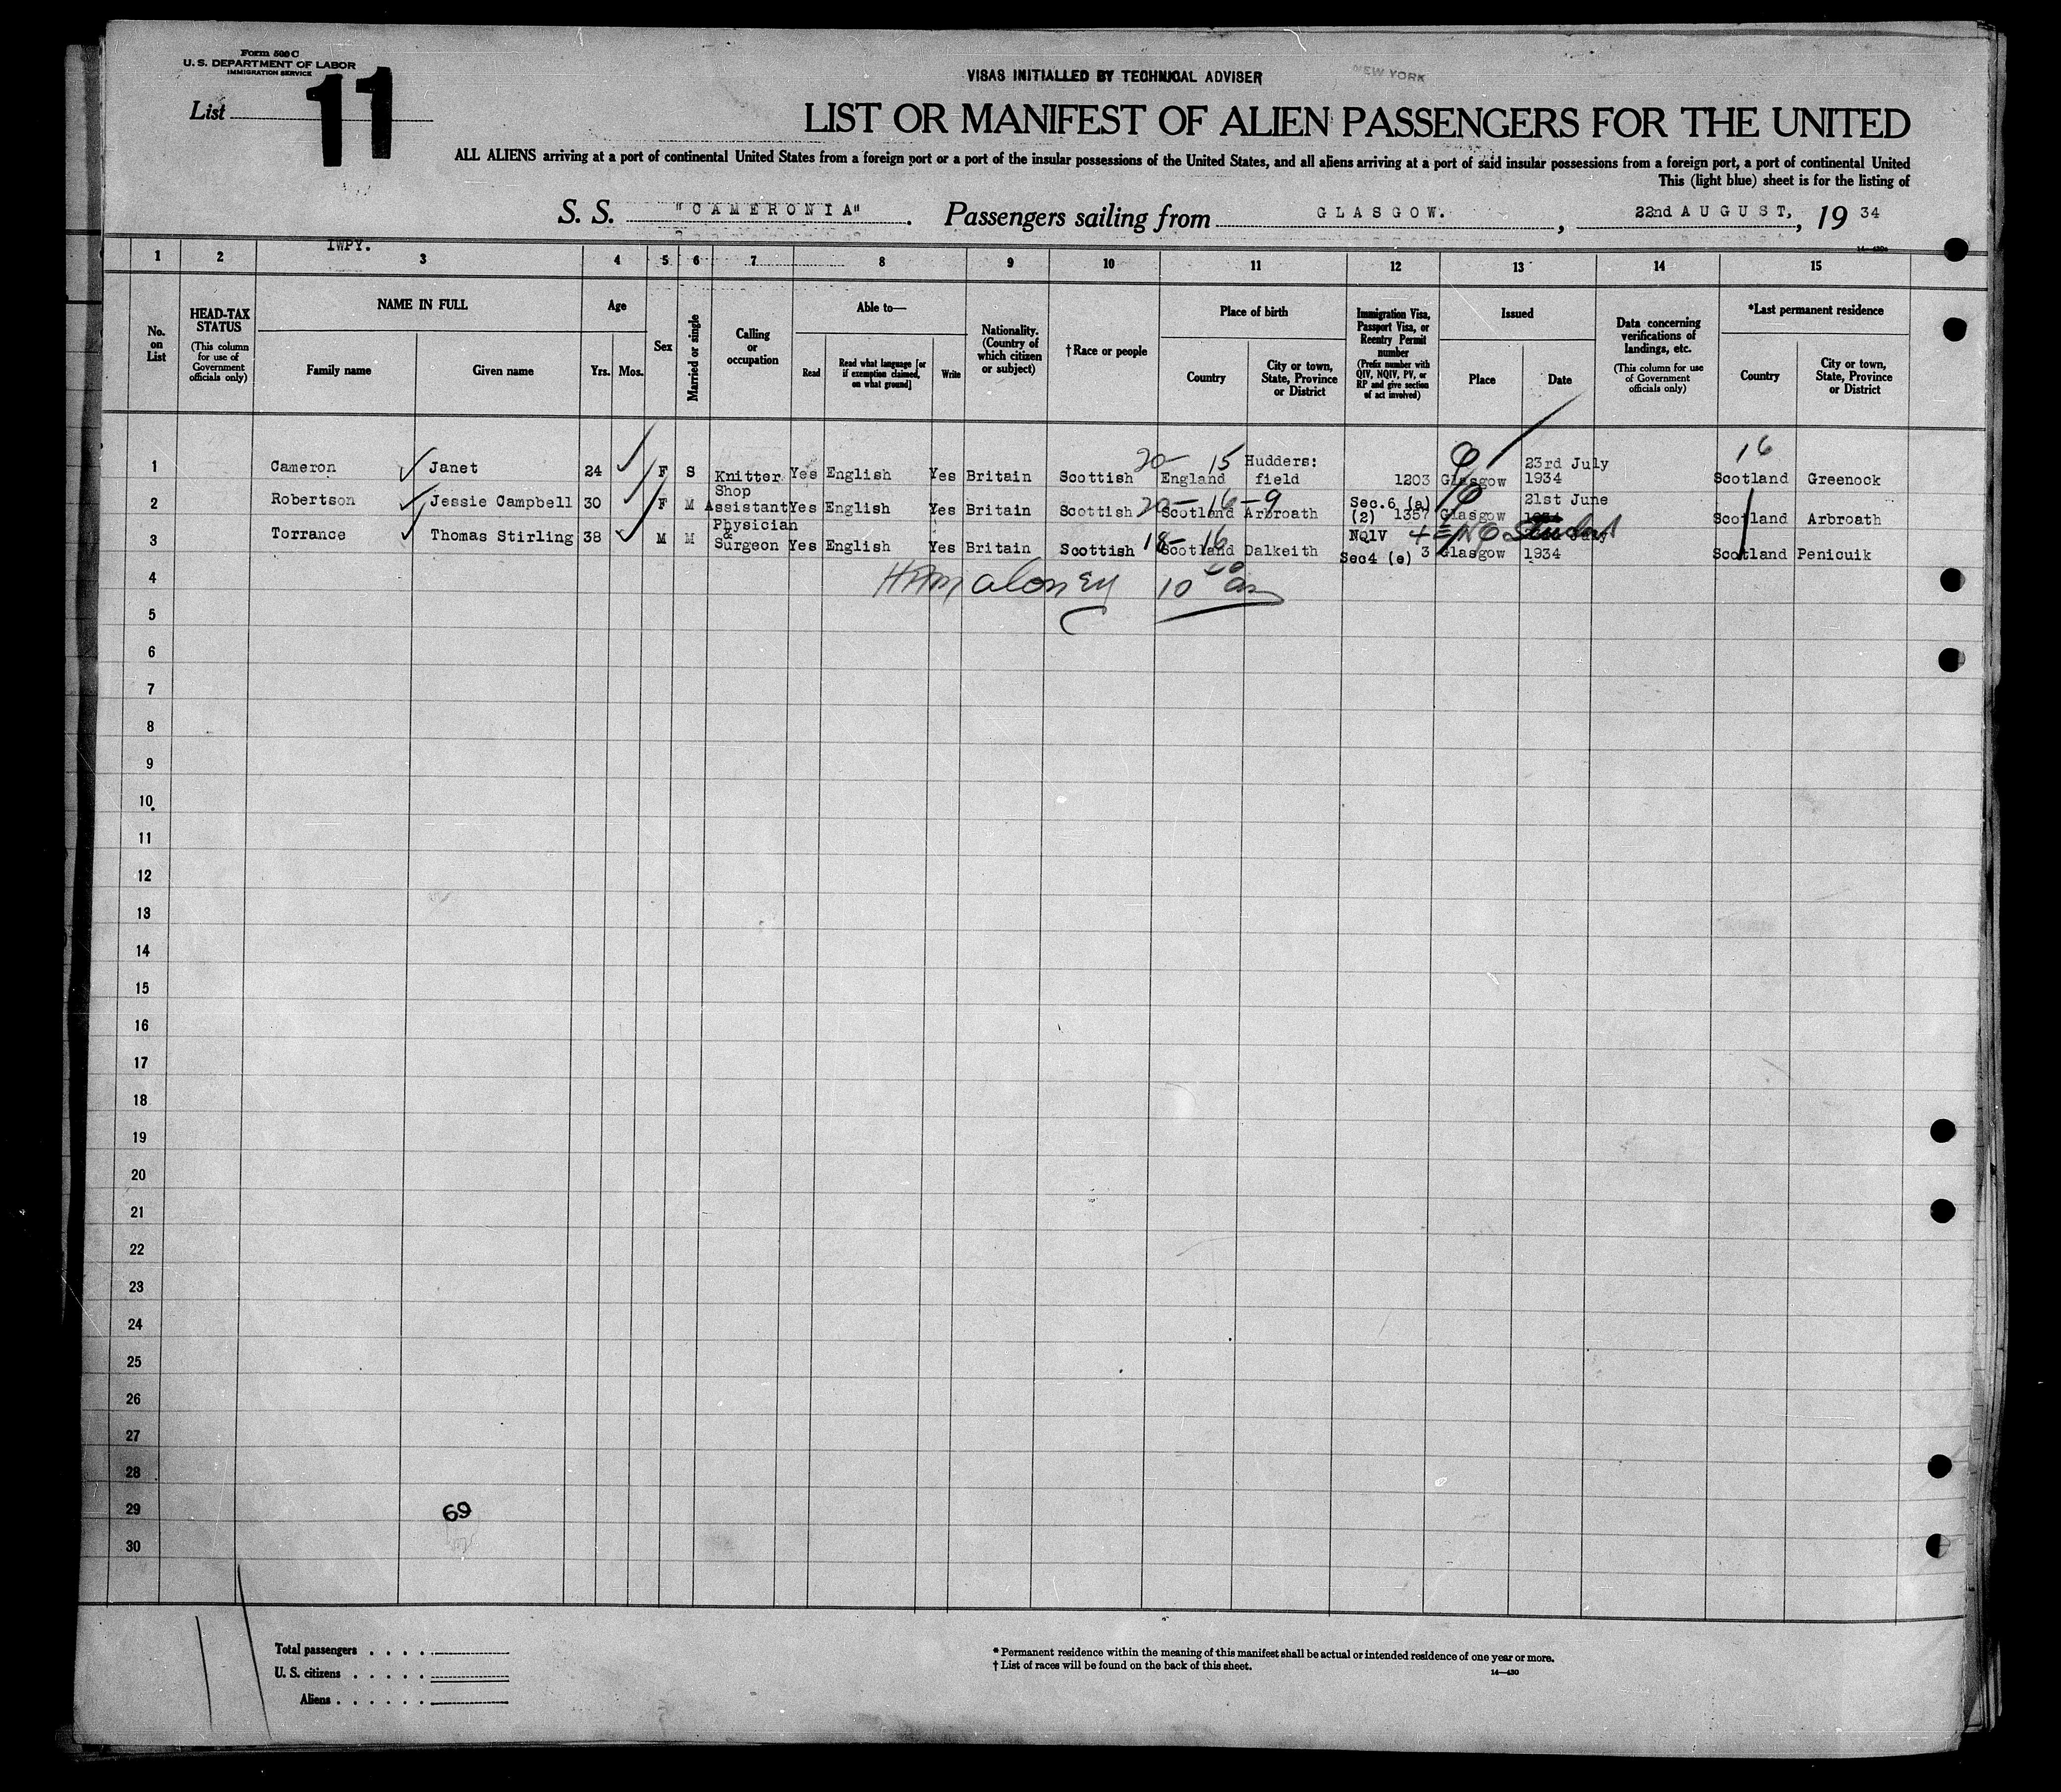 Form 500 C
U. S. DEPARTMENT OF LABOR
IMMIGRATION SERVICE
List 11
VISAS INITIALLED BY TECHNICAL ADVISER
NEW YORK
LIST OR MANIFEST OF ALIEN PASSENGERS FOR THE UNITED
ALL ALIENS arriving at a port of continental United States from a foreign port or a port of the insular possessions of the United States, and all aliens arriving at a port of said insular possessions from a foreign port, a port of continental United
This (light blue) sheet is for the listing of
S. S. "CAMERONIA". Passengers sailing from GLASGOW. , 22nd AUGUST, , 19 34
IWPY.
1 2 3 4 5 6 7 8 9 10 11 12 13 14 15
No. on List
HEAD-TAX STATUS (This column for use of Government officials only)
NAME IN FULL
Family name Given name
Age
Yrs. Mos.
Sex
Married or single
Calling or occupation
Able to—
Read Read what language [or if exemption claimed, on what ground] Write
Nationality. (Country of which citizen or subject)
†Race or people
Place of birth
Country City or town, State, Province or District
Immigration Visa, Passport Visa, or Reentry Permit number (Prefix number with QIV, NQIV, PV, or RP and give section of act involved)
Issued
Place Date
Data concerning verifications of landings, etc. (This column for use of Government officials only)
*Last permanent residence
Country City or town, State, Province or District
1 Cameron Janet 24 F S Knitter Yes English Yes Britain Scottish 20— 15 England Hudders: field 1203 Glasgow 23rd July 1934 16 Scotland Greenock
2 Robertson Jessie Campbell 30 F M Shop Assistant Yes English Yes Britain Scottish 20—16—9 Scotland Arbroath Sec.6 (a) (2) 1357 Glasgow 21st June Scotland Arbroath
3 Torrance Thomas Stirling 38 M M Physician & Surgeon Yes English Yes Britain Scottish 18—16 Scotland Dalkeith NQIV Sec4 (e) 3 Glasgow Student 1934 Scotland Penicuik
4 Maloney 10 00 am
5
6
7
8
9
10
11
12
13
14
15
16
17
18
19
20
21
22
23
24
25
26
27
28
29 69
30
Total passengers
U. S. citizens
Aliens
* Permanent residence within the meaning of this manifest shall be actual or intended residence of one year or more.
† List of races will be found on the back of this sheet.
14—430